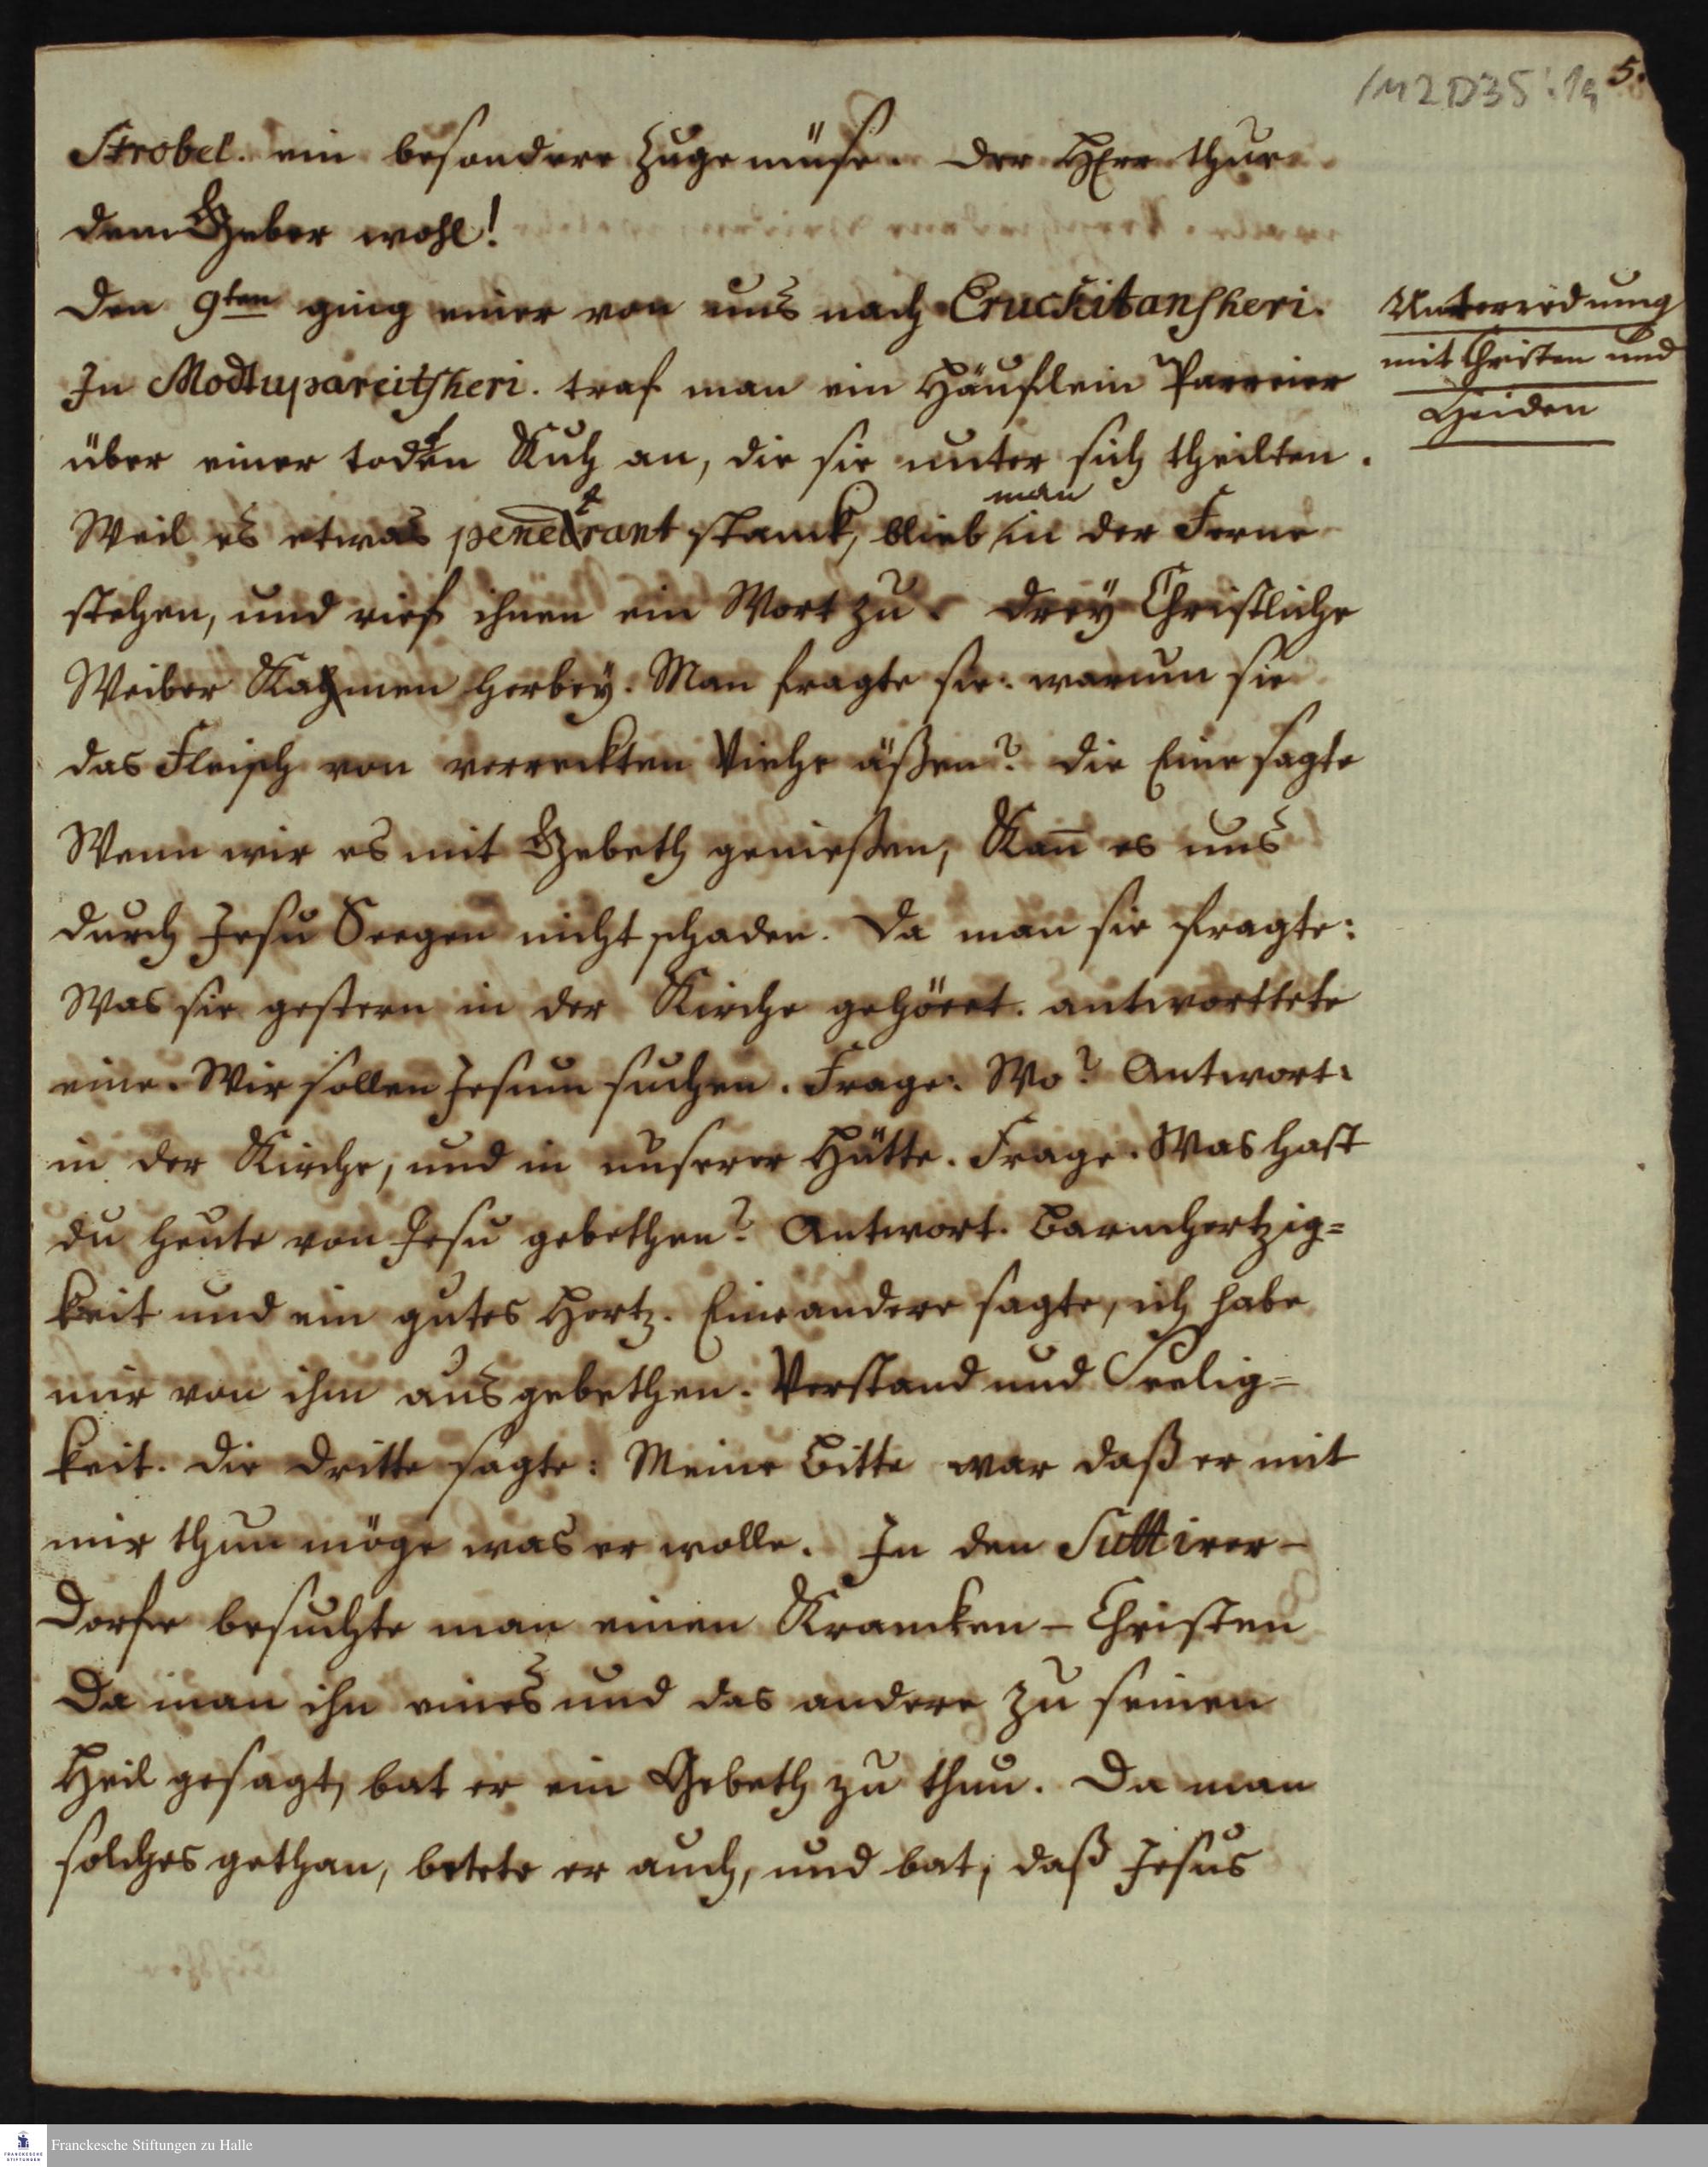 1M2D35:1a 5.
Strobel. ein besondere Zugemüse. Der HErr thue
dem Geber wohl!
Den 9ten ging einer von uns nach Eruckitansheri.
In Modtupareitsheri. traf man ein Häuflein Parreier
über einer todten Kuh an, die sie unter sich theilten.
Weil es etwas penetrant stanck, blieb man in der Ferne
stehen, und rief ihnen ein Wort zu. Drey Christliche
Weiber Kahmen herbey. Man fragte sie: warum sie
das Fleisch von verreckten Viehe äßen? Die Eine sagte
Wenn wir es mit Gebeth genießen, Kan̄ es uns
durch Jesu Seegen nicht schaden. Da man sie fragte:
Was sie gestern in der Kirche gehöret. antworttete
eine. Wir sollen Jesum suchen. Frage: Wo? Antwort:
in der Kirche, und in unserer Hütte. Frage. Was hast
du heute von Jesu gebethen? Antwort. Barmhertzig=
keit und ein gutes Hertz. Eine andere sagte, ich habe
mir von ihm ausgebethen. Verstand und Seelig=
keit. Die dritte sagte: Meine Bitte war daß er mit
mir thun möge was er wolle. In den Suttirer-
Dorfe besuchte man einen Krancken-Christen
Da man ihn eines und das andere zu seinen
Heil gesagt, bat er ein Gebeth zu thun. Da man
solches gethan, betete er auch, und bat, daß Jesus
Unterredung
mit Christen und
Heiden
Franckesche Stiftungen zu Halle